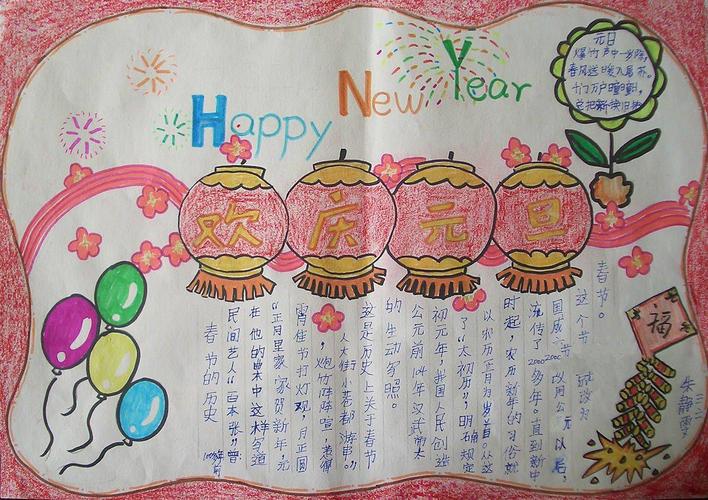 Happy New Year
元日
爆竹声中一岁除,
春风送暖入屠苏。
千门万户曈曈日,
总把新桃换旧符
欢庆元旦
福
春节的历史
1000多年前
民间艺人“百本张”曾
在他的曲本中这样写道
“正月里家家贺新年,元
宵佳节打灯观,月正圆
,炮竹阵阵喧,惹得
人大街小巷都游串。”
这是历史上关于春节
的生动写照。
公元前104年汉武帝太
初元年,我国人民创造
了“太初历”,明确规定
以农历正月为岁首。从这
时起,农历新年的习俗就
流传了2000多年。直到新中
国成 改用公元以后,
这个节 就改为
春节。
朱静雯